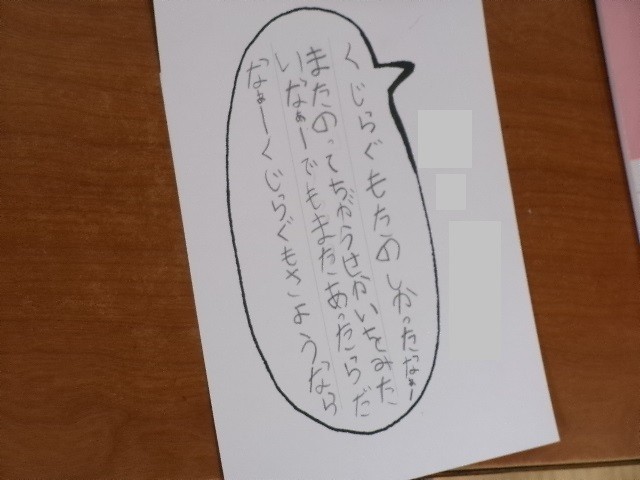 くじらぐもたのしかったなぁー
またのってちがうせかいをみた
いなぁーでもまたあったらだ
なぁーくじらぐもさようなら